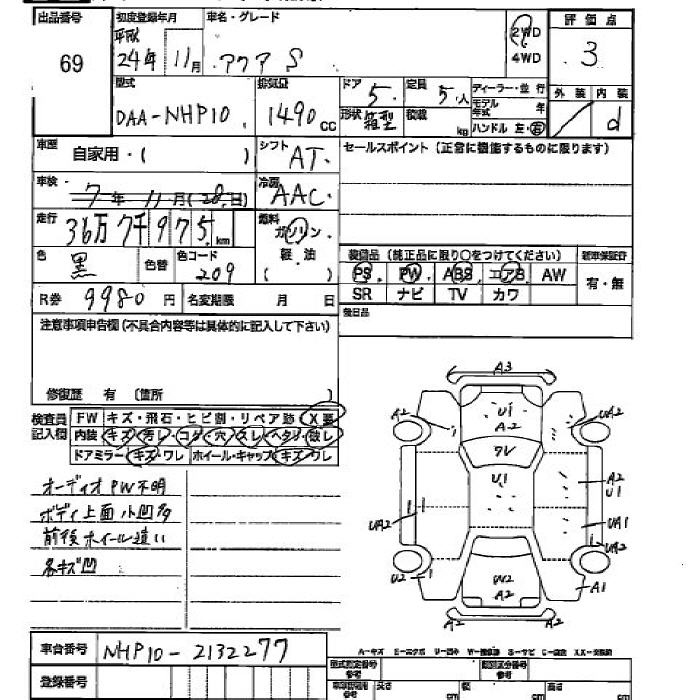 出品番号 初度登録年月 車名・グレード 評価点
69 平成 24年 11月 アクア S 2WD 4WD 3
型式 排気量 ドア 定員 ディーラー・並行 外装 内装
DAA-NHP10 1490cc 5 5人 モデル年式 年 d
形状 箱型 積載 kg ハンドル 左・右
車歴 自家用・( ) シフト AT セールスポイント(正常に機能するものに限ります)
車検 7年 11月(28日) 冷房 AAC
走行 36万7千975km 燃料 ガソリン
色 黒 色替 色コード 209 軽油 ( ) 装備品(純正品に限り○をつけてください) 新車保証書
PS PW ABS エアB AW 有・無
R券 9980円 名変期限 月 日 SR ナビ TV カワ
注意事項申告欄(不具合内容等は具体的に記入して下さい) 後日品
修復歴 有 (箇所 )
検査員 FW キズ・飛石・ヒビ割・リペア跡・X要
記入欄 内装 キズ・汚レ・コゲ・穴・スレ・ヘタリ・破レ
ドアミラー キズ・ワレ ホイール・キャップ キズ・ワレ
オーディオPW不明
ボディ上面小凹多
前後ホイール違い
各キズ凹
A3
A2 U1 UA2
A2
7V
U1 A2
U1
UA2 UA1
UA2
U2 W2 A1
A2
A2 A2
A=キズ E=エクボ U=凹み W=補修跡 S=サビ C=腐食 XX=交換済
車台番号 NHP10-2132277
登録番号
型式指定番号 参考 類別区分番号 参考
参考 長さ cm 幅 cm 高さ cm